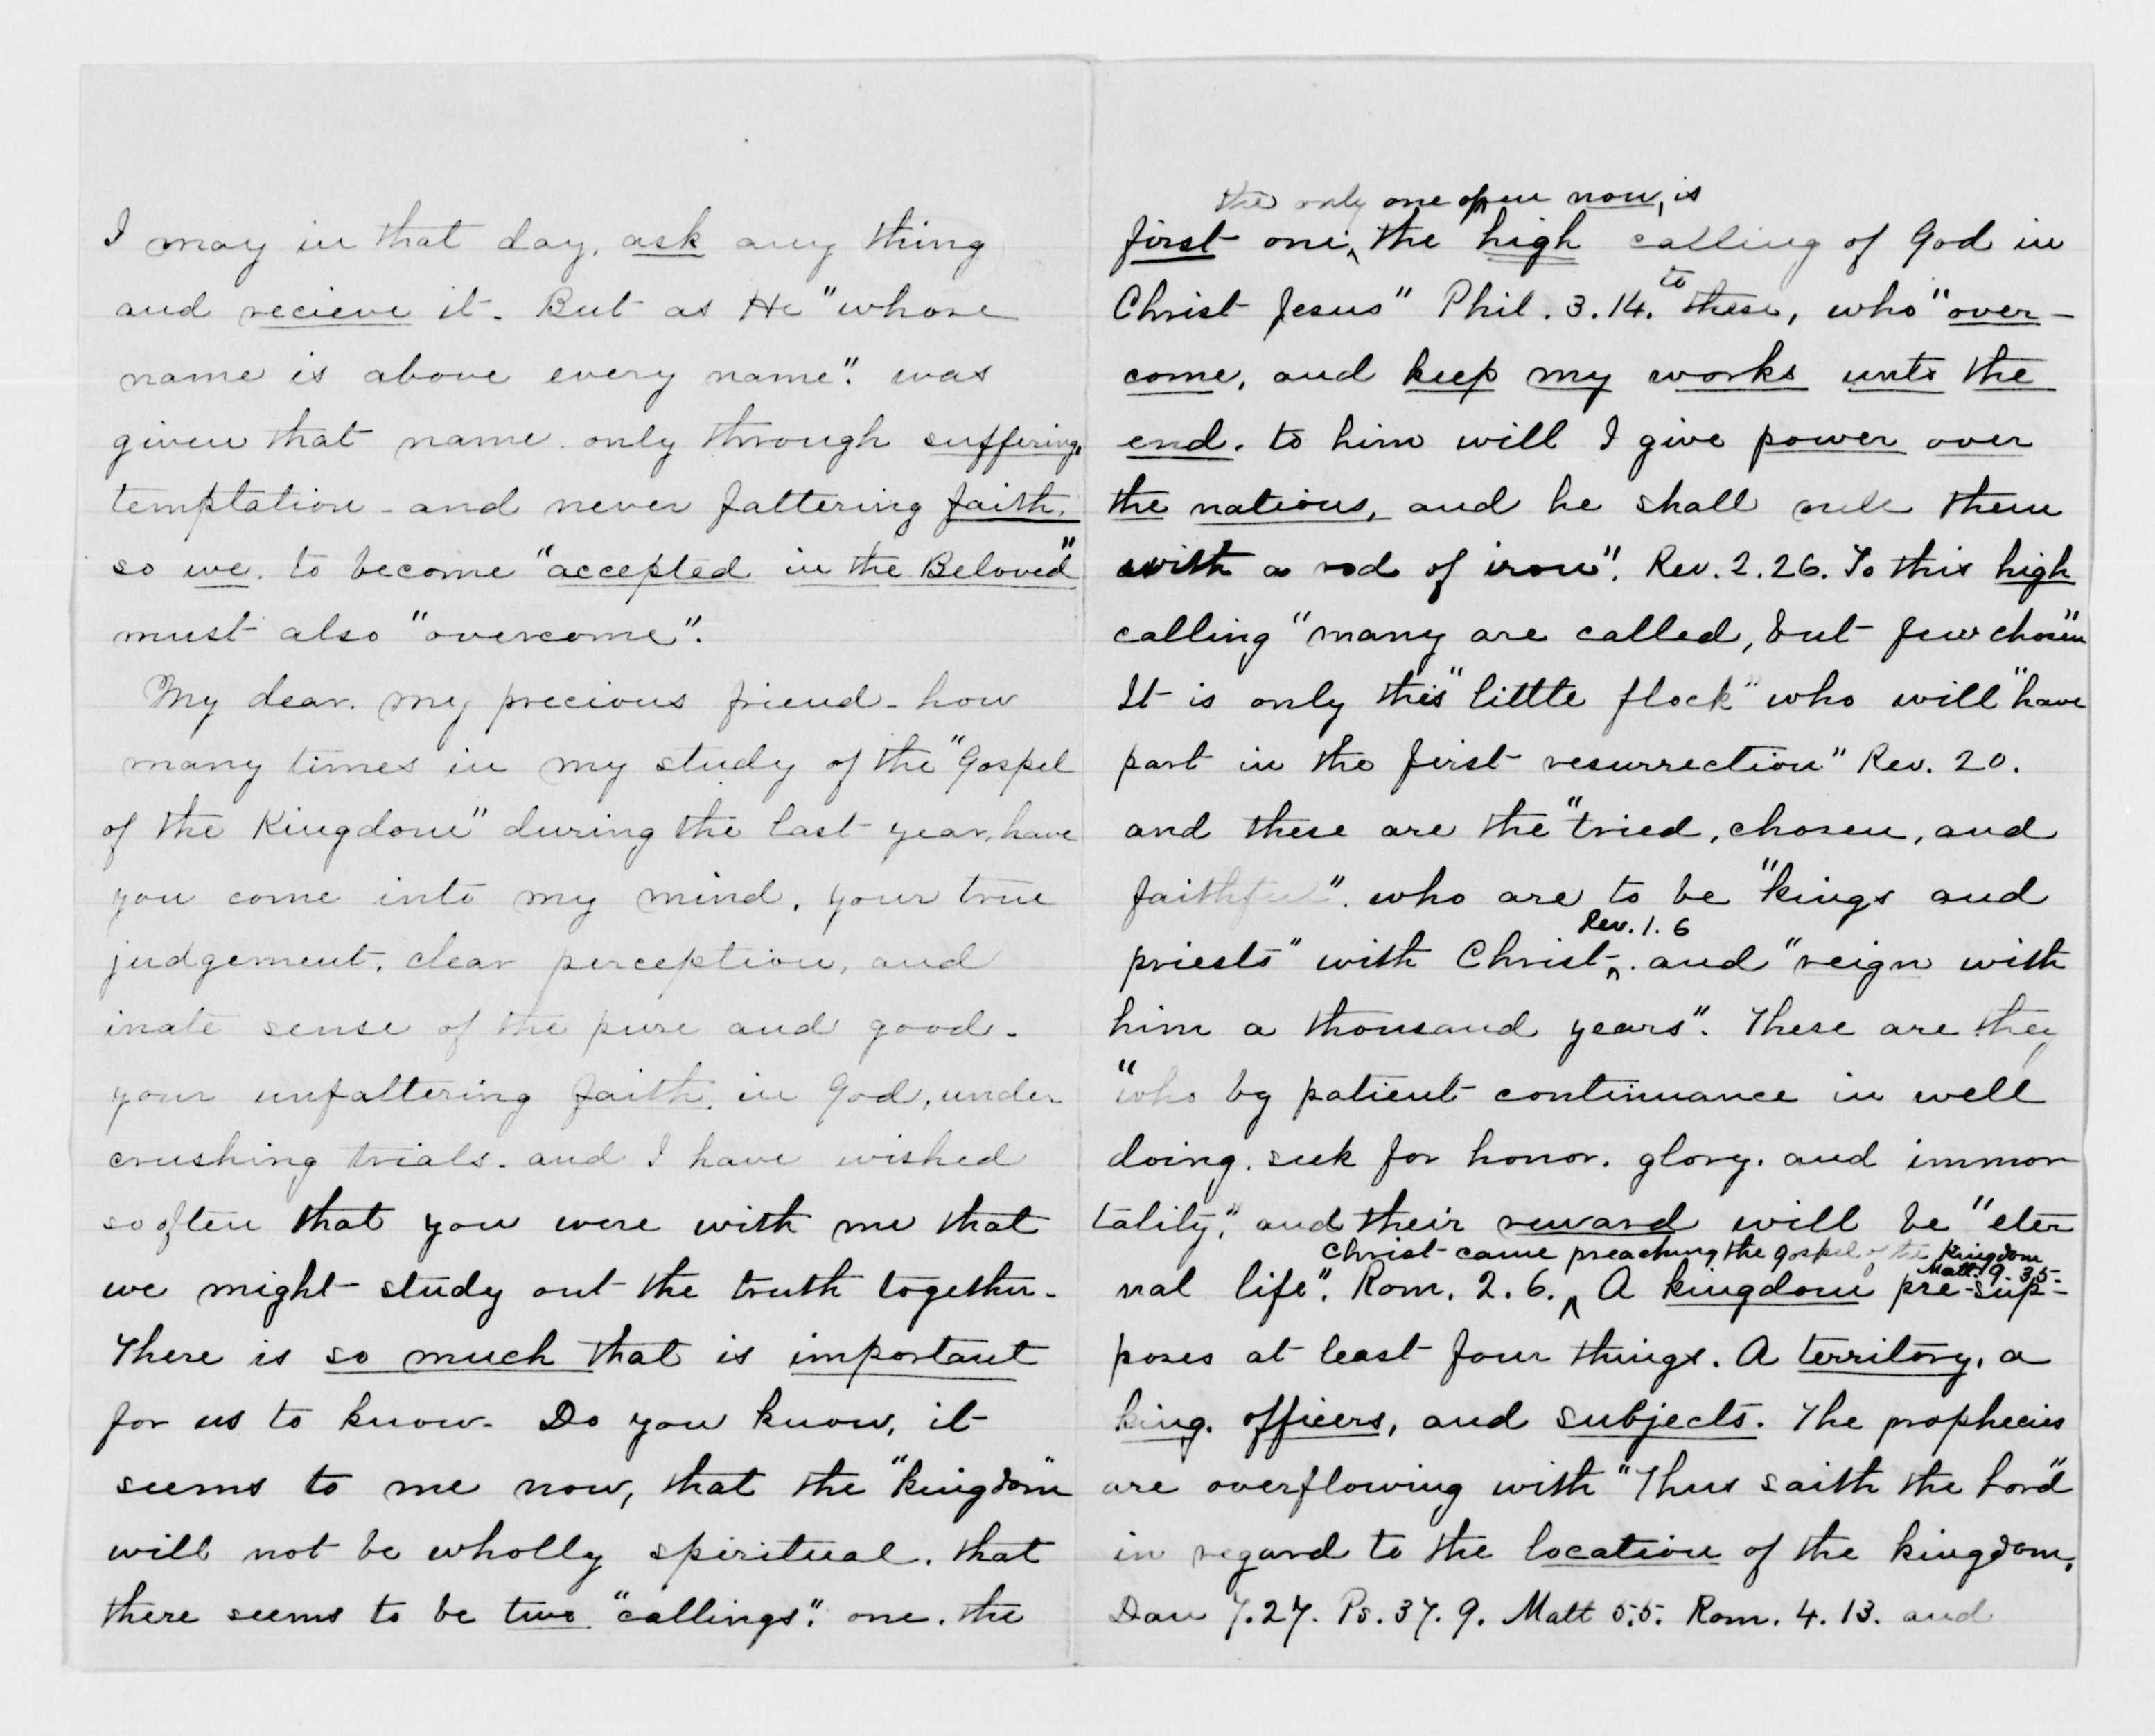 I may in that day, ask any thing
and recieve it. But as He "whose
name is above every name". was
given that name only through suffering,
temptation - and never faltering faith,
so we, to become "accepted in the Beloved"
must also "overcome".
My dear, my precious friend - how
many times in my study of the "Gospel
of the Kingdom" during the last year, have
you come into my mind, your true
judgement, clear perception, and
inate sense of the pure and good -
your unfaltering faith, in God, under
crushing trials - and I have wished
so often that you were with me that
we might study out the truth together -
There is so much that is important
for us to know - Do you know, it
seems to me now, that the "kingdom"
will not be wholly spiritual, that
there seems to be two "callings". one, the
the only one open now, is
first one, ^ the high calling of God in
to
Christ Jesus" Phil. 3.14. these, who "over-
come, and keep my works unto the
end, to him will I give power over
the nations, and he shall rule them
with a rod of iron". Rev. 2.26. To this high
calling "many are called, but few chosen"
It is only this "little flock" who will "have
part in the first resurrection" Rev. 20.
and these are the "tried, chosen, and
faithful". who are to be "kings and
Rev. 1. 6
priests" with Christ - ^. and "reign with
him a thousand years". These are they
"who by patient continuance in well
doing, seek for honor, glory, and immor
tality," and their reward will be "eter
Christ came preaching the gospel of the Kingdom
Matt. 9. 35-
nal life". Rom. 2. 6. ^ A kingdom pre-sup-
poses at least four things. A territory, a
king, officers, and subjects. The prophecies
are overflowing with "Thus saith the Lord"
in regard to the location of the kingdom,
Dan 7.27. Ps. 37. 9. Matt 5.5. Rom. 4. 13. and